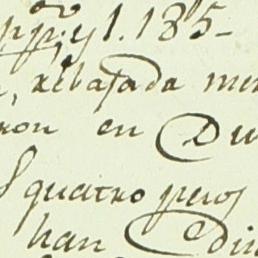 y 1.185-
rebajada me
ron en Du
quatro pesos
han Din